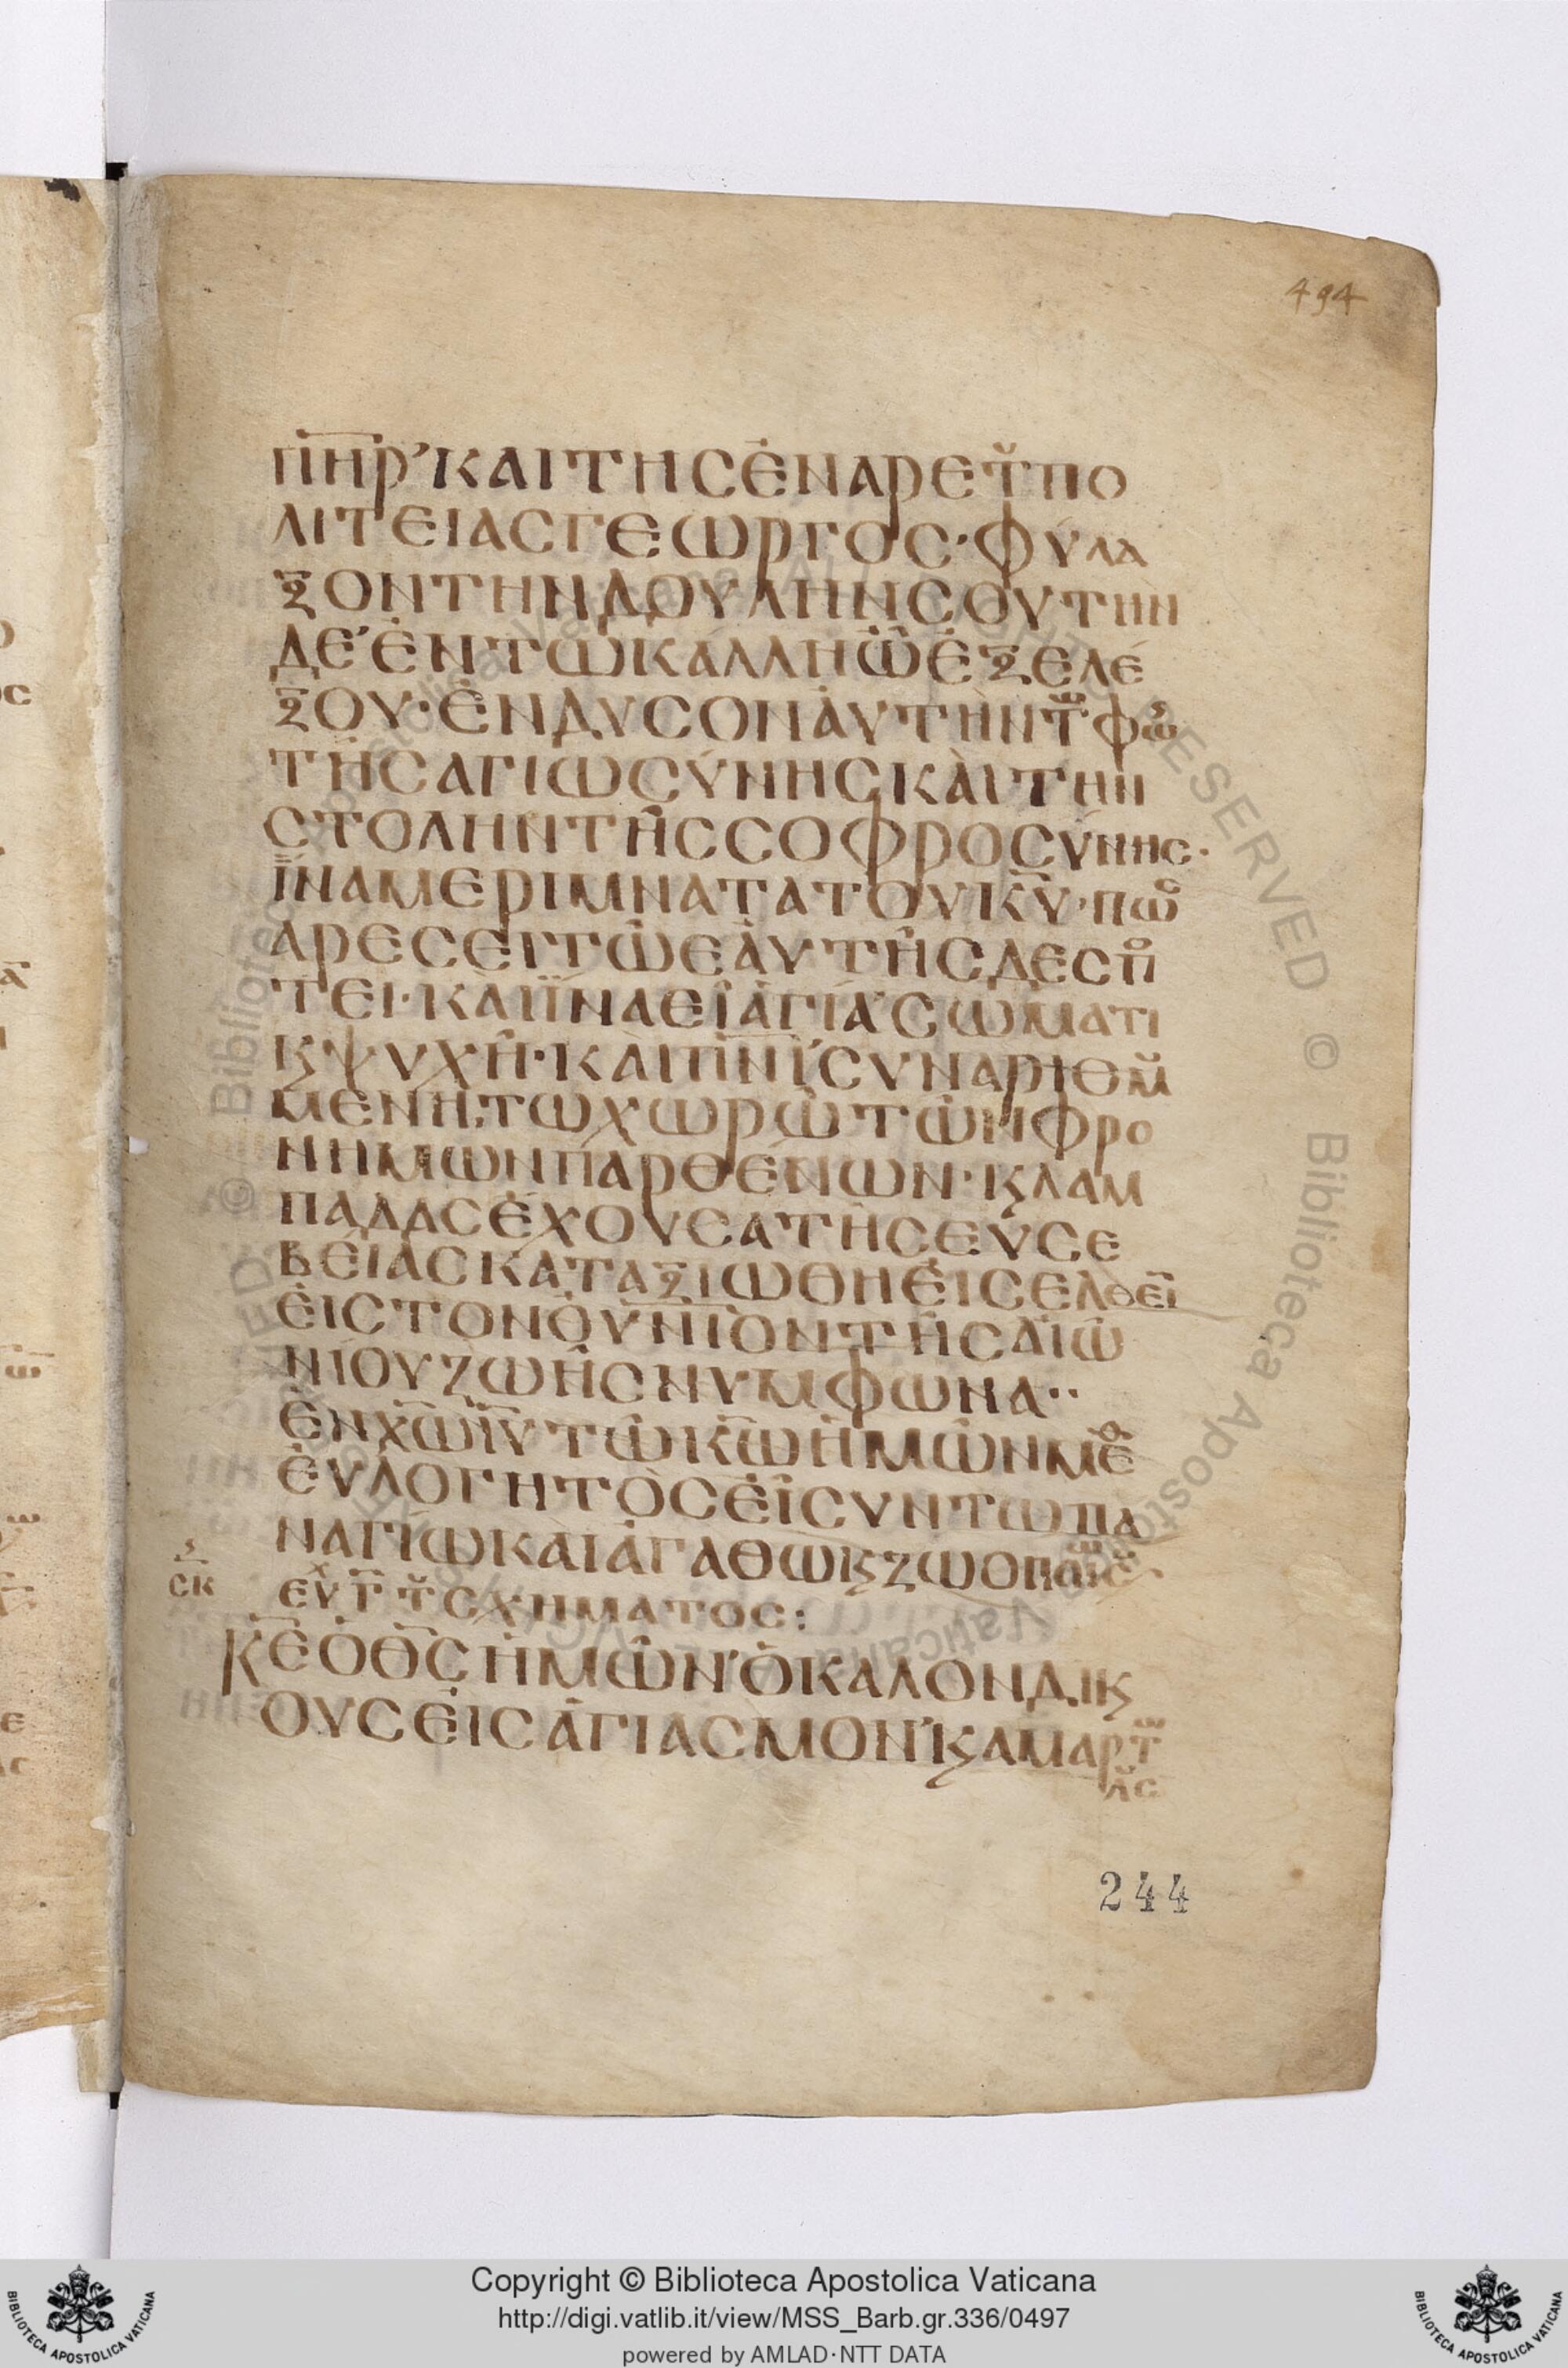 494
Π̅Η̅Ρ̅ʼ ΚΑΙ ΤΗΣ ἘΝΑΡΕΤ̆ ΠΟ
ΛΙΤΕΙΑΣ ΓΕΩΡΓΟΣ· ΦΥΛΑ
ΞΟΝ ΤΗΝ ΔΟΥΛΗΝ ΣΟΥ ΤΗΝ
ΔΕ ἘΝ ΤΩ ΚΑΛΛΗΩ ἘΞΕΛΕ
ΞΟΥ· ἘΝΔΥΣΟΝ ἈΥΤῊΝ Τ ΦΩ
ΤΗΣ ΑΓΙΩΣΥΝΗΣ ΚΑΙ ΤΗΝ
ΣΤΟΛΗΝ ΤΗΣ ΣΟΦΡΟΣΥΝΗΣ·
ΪΝΑ ΜΕΡΙΜΝΑ ΤΑ ΤΟΥ Κ̅Υ̅· ΠΩΣ
ΑΡΕΣΕΙ ΤΩ ΕΑΥΤΗΣ ΔΕΣΠΟ
ΤΕΙ· ΚΑΙ ΪΝΑ ΕΙ ΑΓΙΑ ΣΩΜΑΤΙ
Ϗ ΨΥΧΗ· ΚΑΙ Π̅Ν̅Ι̅ ΣΥΝΑΡΙΘΜ
ΜΕΝΗ, ΤΩ ΧΩΡΩ ΤΩΝ ΦΡΟ
ΝΗΜΩΝ ΠΑΡΘΕΝΩΝ· Ϗ ΛΑΜ
ΠΑΔΑΣ ΕΧΟΥΣΑ ΤΗΣ ΕΥΣΕ
ΒΕΙΑΣ ΚΑΤΑΞΙΩΘΗ ΕΙΣΕΛΘΕΙ̅
ΕΙΣ ΤΟΝ Ο̅Υ̅Ν̅ΙΟΝ ΤΗΣ ΑΙΩ
ΝΙΟΥ ΖΩΗΣ ΝΥΜΦΩΝΑ··
ἘΝ Χ̅Ω̅ Ι̅Υ̅ ΤΩ Κ̅Ω̅ ΗΜΩΝ ΜΕΘ
ΕΥΛΟΓΗΤΟΣ ΕΙ ΣΥΝ ΤΩ ΠΑ
ΝΑΓΙΩ ΚΑΙ ΑΓΑΘΩ Ϗ ΖΩΟΠΟΙΩ Σ
ΣΚ
ΕΥΧ Γ̅ Τ̆ ΣΧΗΜΑΤΟΣ:
Κ̅Ε̅ Ο Θ̅Σ̅ ΗΜΩΝ Ο ΚΑΛΟΝ ΔΙΚ
ΟΥΣ ΕΙΣ ΑΓΙΑΣΜΟΝ Ϗ ΑΜΑΡΤΩ
ΛΣ
244
Copyright © Biblioteca Apostolica Vaticana
http://digi.vatlib.it/view/MSS_Barb.gr.336/0497
powered by AMLAD·NTT DATA
BIBLIOTECA APOSTOLICA VATICANA
BIBLIOTECA APOSTOLICA VATICANA